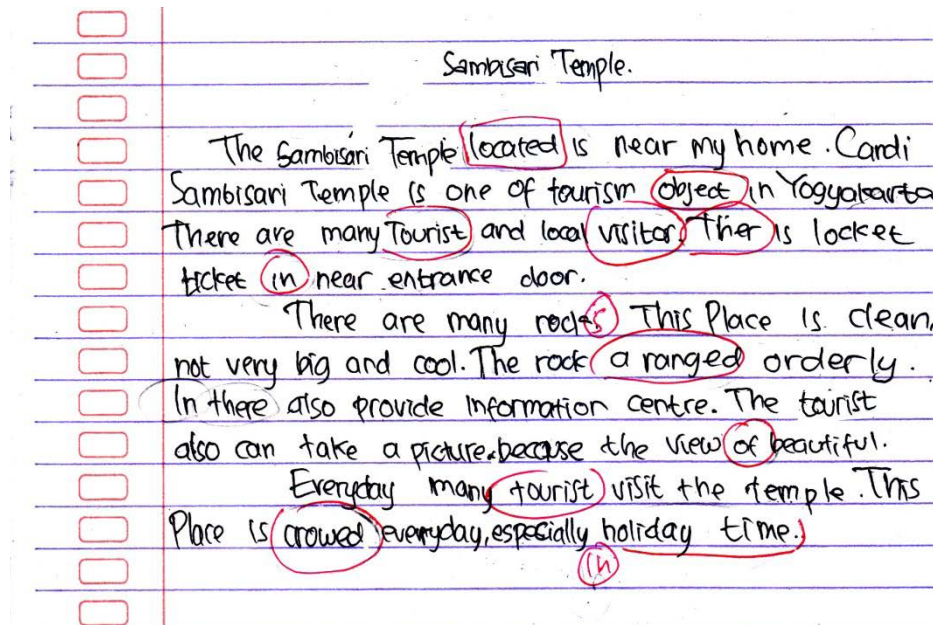 Sambisari Temple.
The Sambisari Temple located is near my home. Cardi
Sambisari Temple is one of tourism object in Yogyakarta
There are many Tourist and local visitor. Ther is locket
ticket in near entrance door.
There are many rocks This Place is clean,
not very big and cool. The rock a ranged orderly.
In there also provide information centre. The tourist
also can take a picture.because the view of beautiful.
Everyday many tourist visit the temple. This
Place is crowed everyday, especially holiday time.
in